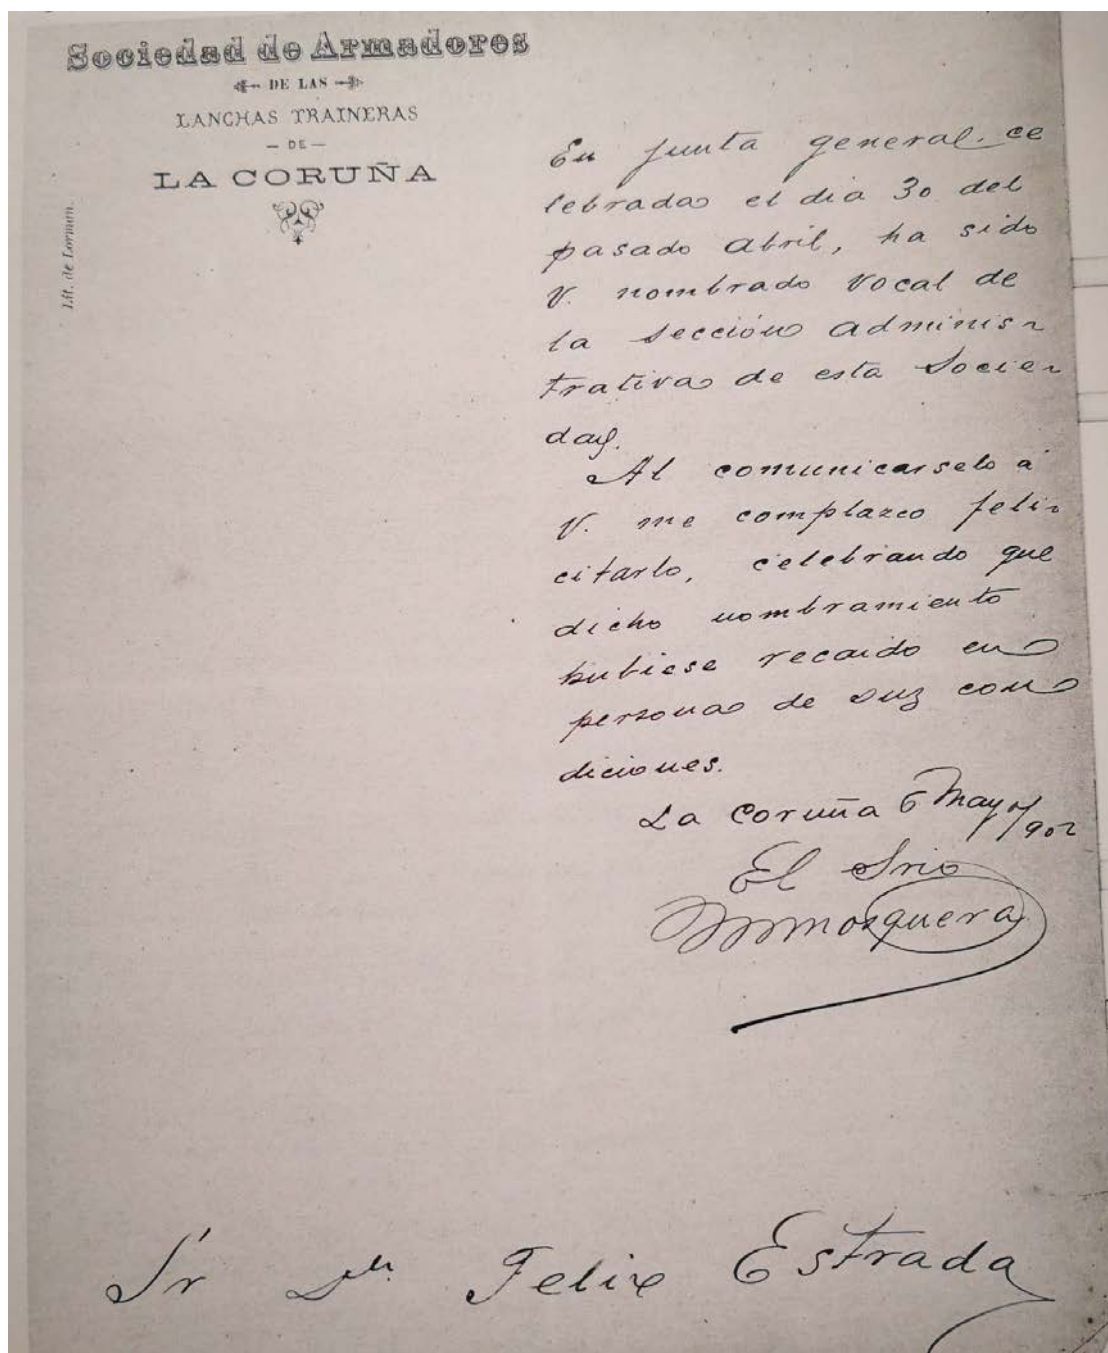 Sociedad de Armadores
DE LAS
LANCHAS TRAINERAS
— DE —
LA CORUÑA
Lit. de Lorman.
En junta general ce
lebrada el dia 30 del
pasado Abril, ha sido
V. nombrado vocal de
la sección adminis-
trativa de esta Socie-
dad.
Al comunicarselo á
V. me complazco feli-
citarlo, celebrando que
dicho nombramiento
hubiese recaido en
persona de sus con
diciones.
La Coruña 6 Mayo/902
El Srio
Mosquera
Sr Dn Felix Estrada